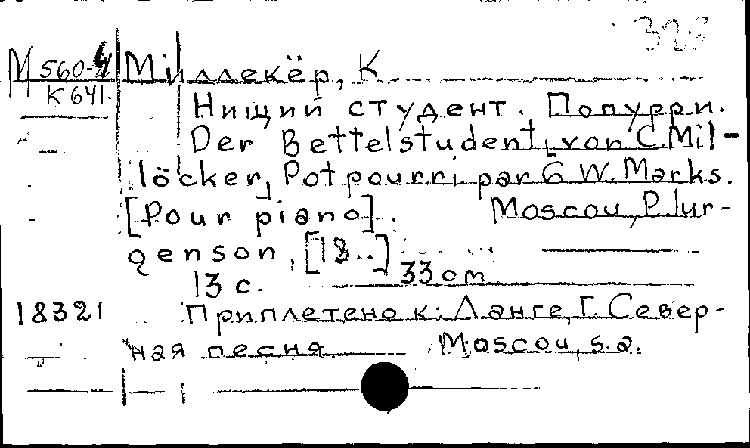 323
М 560-4 Миллекёр, К
К 641
Нищий студент. Попурри.
Der Bettelstudent, von C. Mil-
löcker, Pot pourri par G. W. Marks.
[Pour piano]. Moscou, P. Jur-
genson, [18..]
13 с. 33 cm
18321 Приплетено к: Ланге, Г. Север-
ная песня Moscou, s.a.